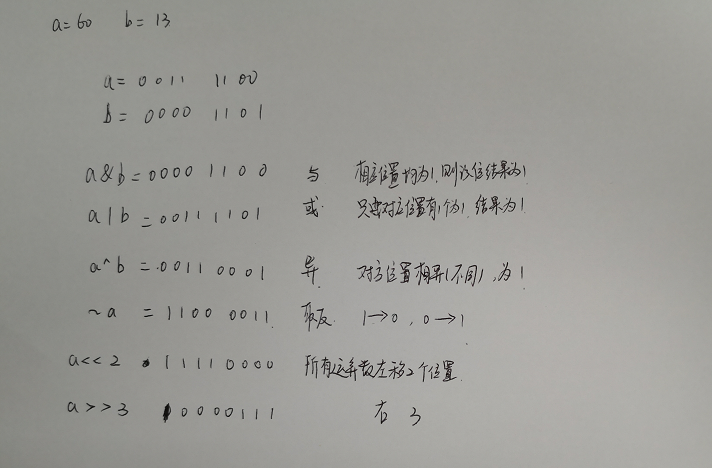 a=60 b=13
a= 0011 1100
b= 0000 1101
a&b=0000 1100 与 相应位置均为1,则该位结果为1
a|b =00111101 或 只要对应位置有1个为1,结果为1
a^b =0011 0001 异 对应位置相异(不同),为1
~a =1100 0011 取反 1→0,0→1
a<<2 11110000 所有运算数左移2个位置
a>>3 00000111 右 3